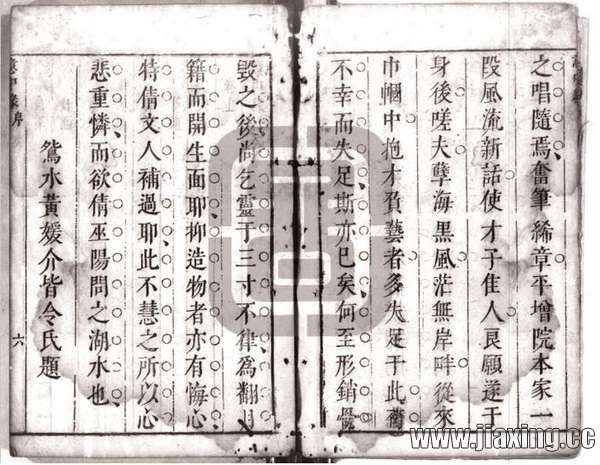 之唱隨焉奮筆絺章平增院本家一
段風流新話使才子佳人良願遂于
身後嗟夫孽海黑風茫無岸畔從來
巾幗中抱才負藝者多失足于此
不幸而失足斯亦已矣何至形銷
毀之後尚乞靈于三寸不律為翻
籍而開生面耶抑造物者亦有悔心
特倩文人補過耶此不慧之所以心
悲重憐而欲倩巫陽問之湖水也
鴛水黃媛介皆令氏題
六
www.jiaxing.cc